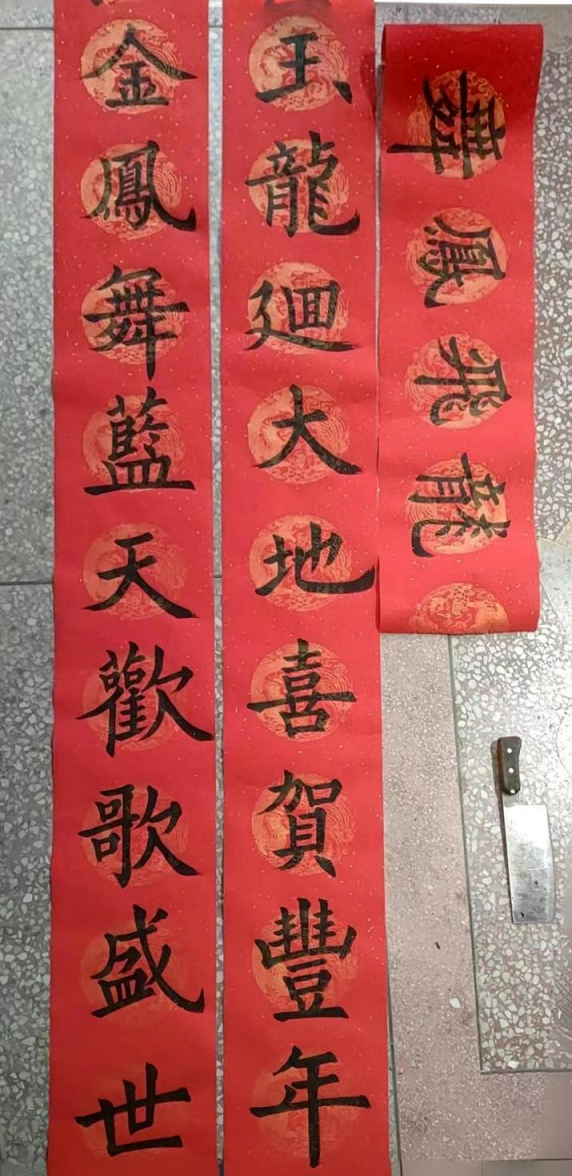 龍飛鳳舞
玉龍廻大地喜賀豐年
金鳳舞藍天歡歌盛世